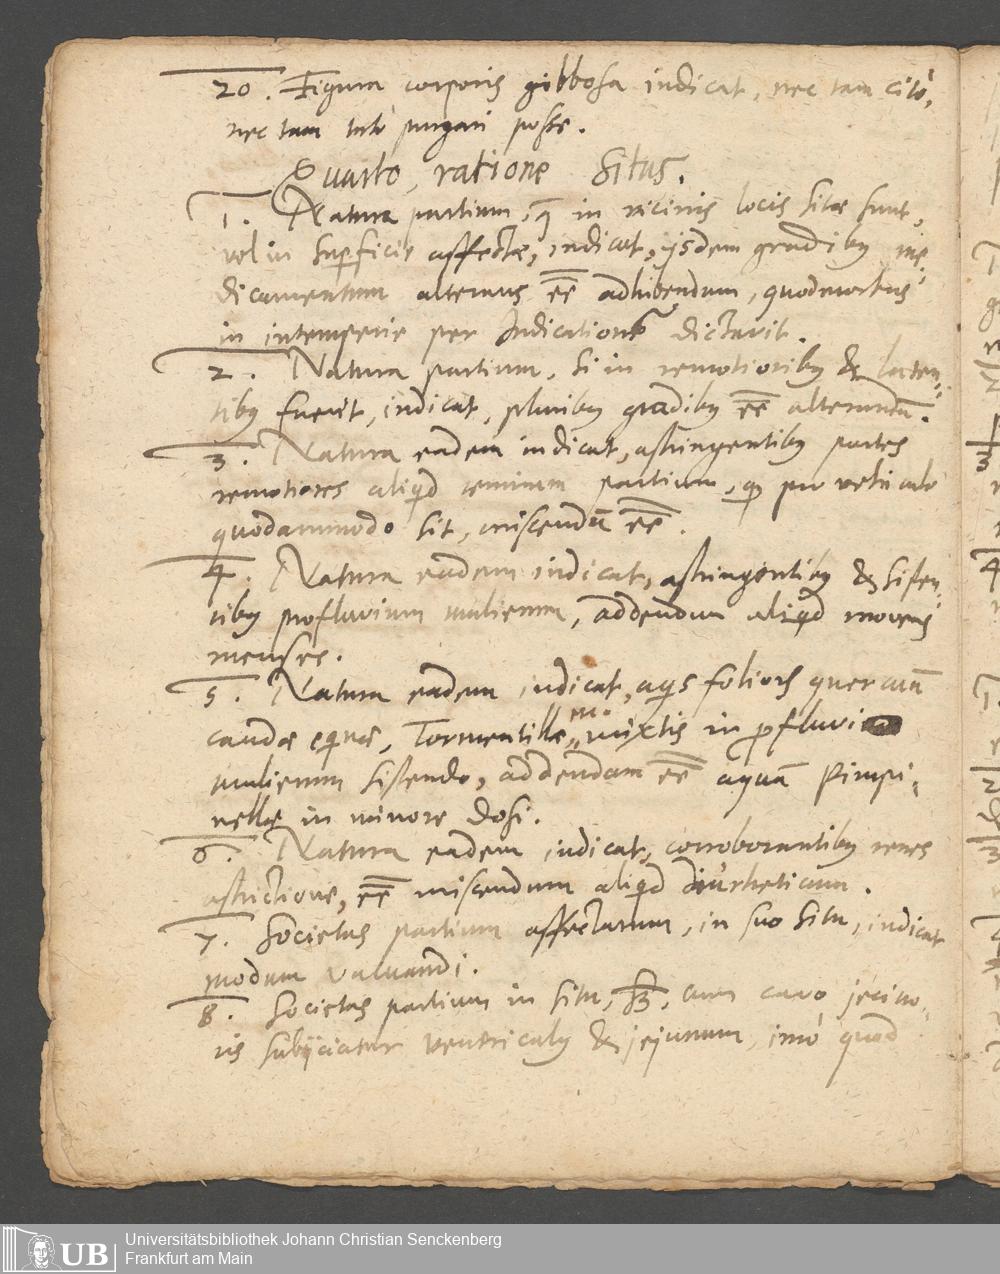 20. Figura corporis gibbosa indicat, nec tam citò,
nec tam tutò purgari posse.
Quarto, ratione Situs.
1. Natura partium, q̃ in vicinis locis sitæ sunt,
vel in supficie affectæ, indicat, ijsdem gradibꝰ me-
dicamentum alterans ēē adhibendum, quod morbus
in intemperie per Indicationẽ dictavit.
2. Natura partium, si in remotioribꝰ & laten-
tibꝰ fuerit, indicat, pluribꝰ gradibꝰ ēē alterandũ.
3. Natura eadem indicat, astringentibꝰ partes
remotiores aliqd partium, qd pro vehiculo
quodammodo sit, miscendũ ēē.
4. Natura eadem indicat, astringentibꝰ & sisten-
tibꝰ profluvium muliebrem, addendum aliqd movens
menses.
5. Natura eadem indicat, aqis foliors quercuũ
caudæ eqinæ, Tormentillæ, mixtis in pfluvi
muliebrem sistendo, addendam ēē aquã Pimpi-
nellæ in minore dosi.
6. Natura eadem indicat, corroborantibꝰ renes
astrictione, ēē miscendum aliqd diurheticum.
7. Societas partium affectarum, in suo situ, indicat
modum vacuandi.
8. Societas partium in situ, cum cavo jecino-
ris subijciatur ventriculꝰ & jejunum, imò quod
Universitätsbibliothek Johann Christian Senckenberg
Frankfurt am Main
UB